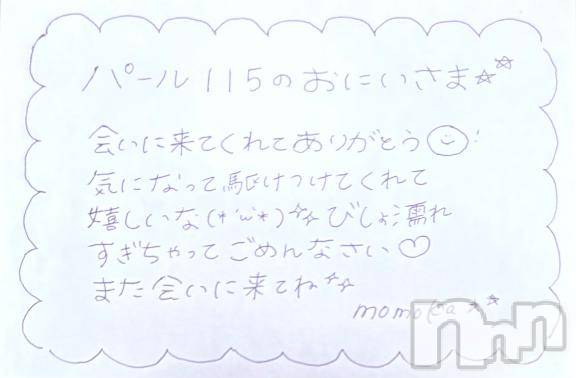 パール115のおにいさま☆☆
会いに来てくれてありがとう☺!
気になって駆けつけてくれて
嬉しいな(*´ω`*)☆☆びしょ濡れ
すぎちゃってごめんなさい♡
また会いに来てね☆☆
momoka ☆☆
nnn